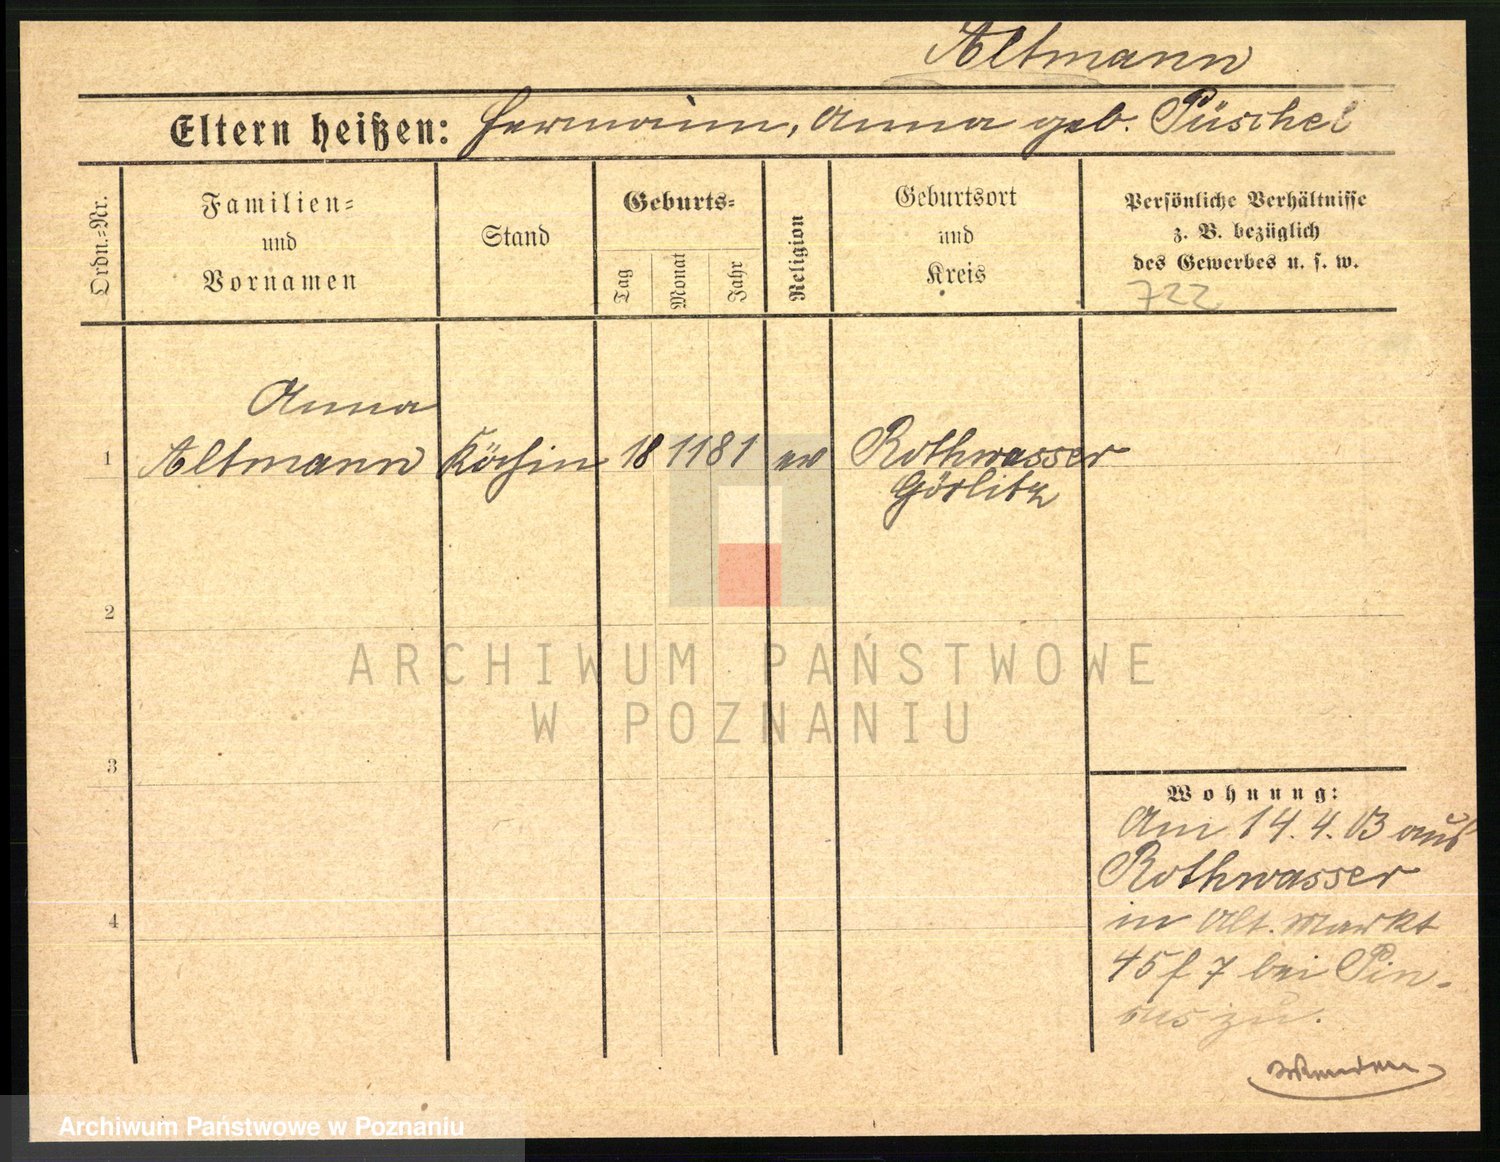 Altmann
Eltern heißen: Hermann, Anna geb. Püschel
Ordn.=Nr.
Familien=
und
Vornamen
Stand
Geburts=
Tag
Monat
Jahr
Religion
Geburtsort
und
Kreis
Persönliche Verhältnisse
z. B. bezüglich
des Gewerbes u. s. w.
722
Anna
1 Altmann Köchin 18 11 81 ev Rothwasser
Görlitz
2
3
4
Wohnung:
Am 14.4.03 aus
Rothwasser
in Alt. Markt
45 f 7 bei Pin-
cus zu.
Wenden
ARCHIWUM PAŃSTWOWE
W POZNANIU
Archiwum Państwowe w Poznaniu